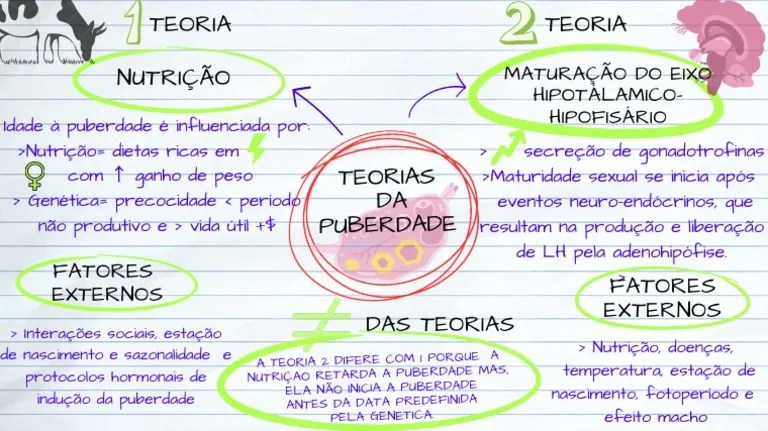 1 TEORIA
NUTRIÇÃO
Idade à puberdade é influenciada por:
>Nutrição= dietas ricas em
com ↑ ganho de peso
> Genética= precocidade < período
não produtivo e > vida útil +$
FATORES
EXTERNOS
> Interações sociais, estação
de nascimento e sazonalidade e
protocolos hormonais de
indução da puberdade
TEORIAS
DA
PUBERDADE
≠ DAS TEORIAS
A TEORIA 2 DIFERE COM 1 PORQUE A
NUTRIÇÃO RETARDA A PUBERDADE MAS,
ELA NÃO INICIA A PUBERDADE
ANTES DA DATA PREDEFINIDA
PELA GENETICA
2 TEORIA
MATURAÇÃO DO EIXO
HIPOTALAMICO-
HIPOFISÁRIO
> secreção de gonadotrofinas
>Maturidade sexual se inicia após
eventos neuro-endócrinos, que
resultam na produção e liberação
de LH pela adenohipófise.
FATORES
EXTERNOS
> Nutrição, doenças,
temperatura, estação de
nascimento, fotoperíodo e
efeito macho